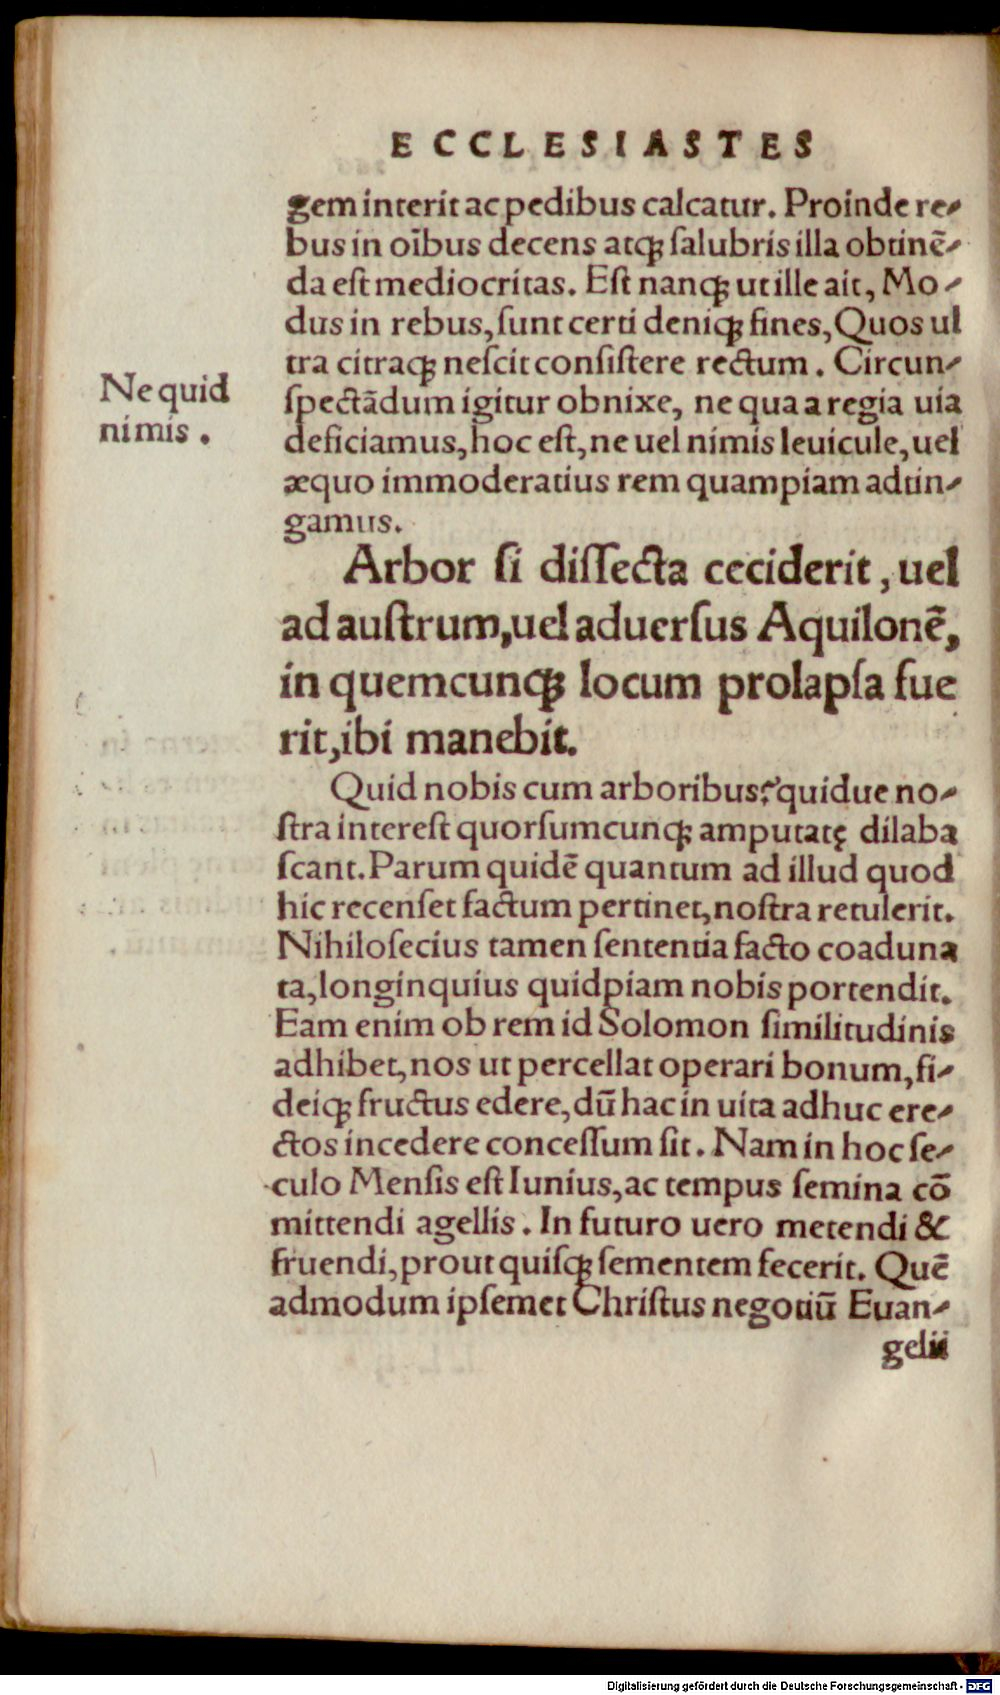 ECCLESIASTES
gem interit ac pedibus calcatur. Proinde re-
bus in oĩbus decens atqꝫ ſalubris illa obtinẽ-
da eſt mediocritas. Eſt nanqꝫ ut ille ait, Mo-
dus in rebus, ſunt certi deniqꝫ fines, Quos ul
tra citraqꝫ neſcit conſiſtere rectum. Circun-
ſpectãdum igitur obnixe, ne qua a regia uia
deficiamus, hoc eſt, ne uel nimis leuicule, uel
æquo immoderatius rem quampiam adtin-
gamus.
Ne quid
nimis.
Arbor ſi diſſecta ceciderit, uel
ad auſtrum, uel aduerſus Aquilonẽ,
in quemcunqꝫ locum prolapſa fue
rit, ibi manebit.
Quid nobis cum arboribus? quidue no-
ſtra intereſt quorſumcunqꝫ amputatę dilaba
ſcant. Parum quidẽ quantum ad illud quod
hic recenſet factum pertinet, noſtra retulerit.
Nihiloſecius tamen ſententia facto coaduna
ta, longinquius quidpiam nobis portendit.
Eam enim ob rem id Solomon ſimilitudinis
adhibet, nos ut percellat operari bonum, fi-
deiqꝫ fructus edere, dũ hac in uita adhuc ere-
ctos incedere conceſſum ſit. Nam in hoc ſe-
culo Menſis eſt Iunius, ac tempus ſemina cõ
mittendi agellis. In futuro uero metendi &
fruendi, prout quiſqꝫ ſementem fecerit. Quẽ
admodum ipſemet Chriſtus negotiũ Euan-
gelii
Digitalisierung gefördert durch die Deutsche Forschungsgemeinschaft - DFG